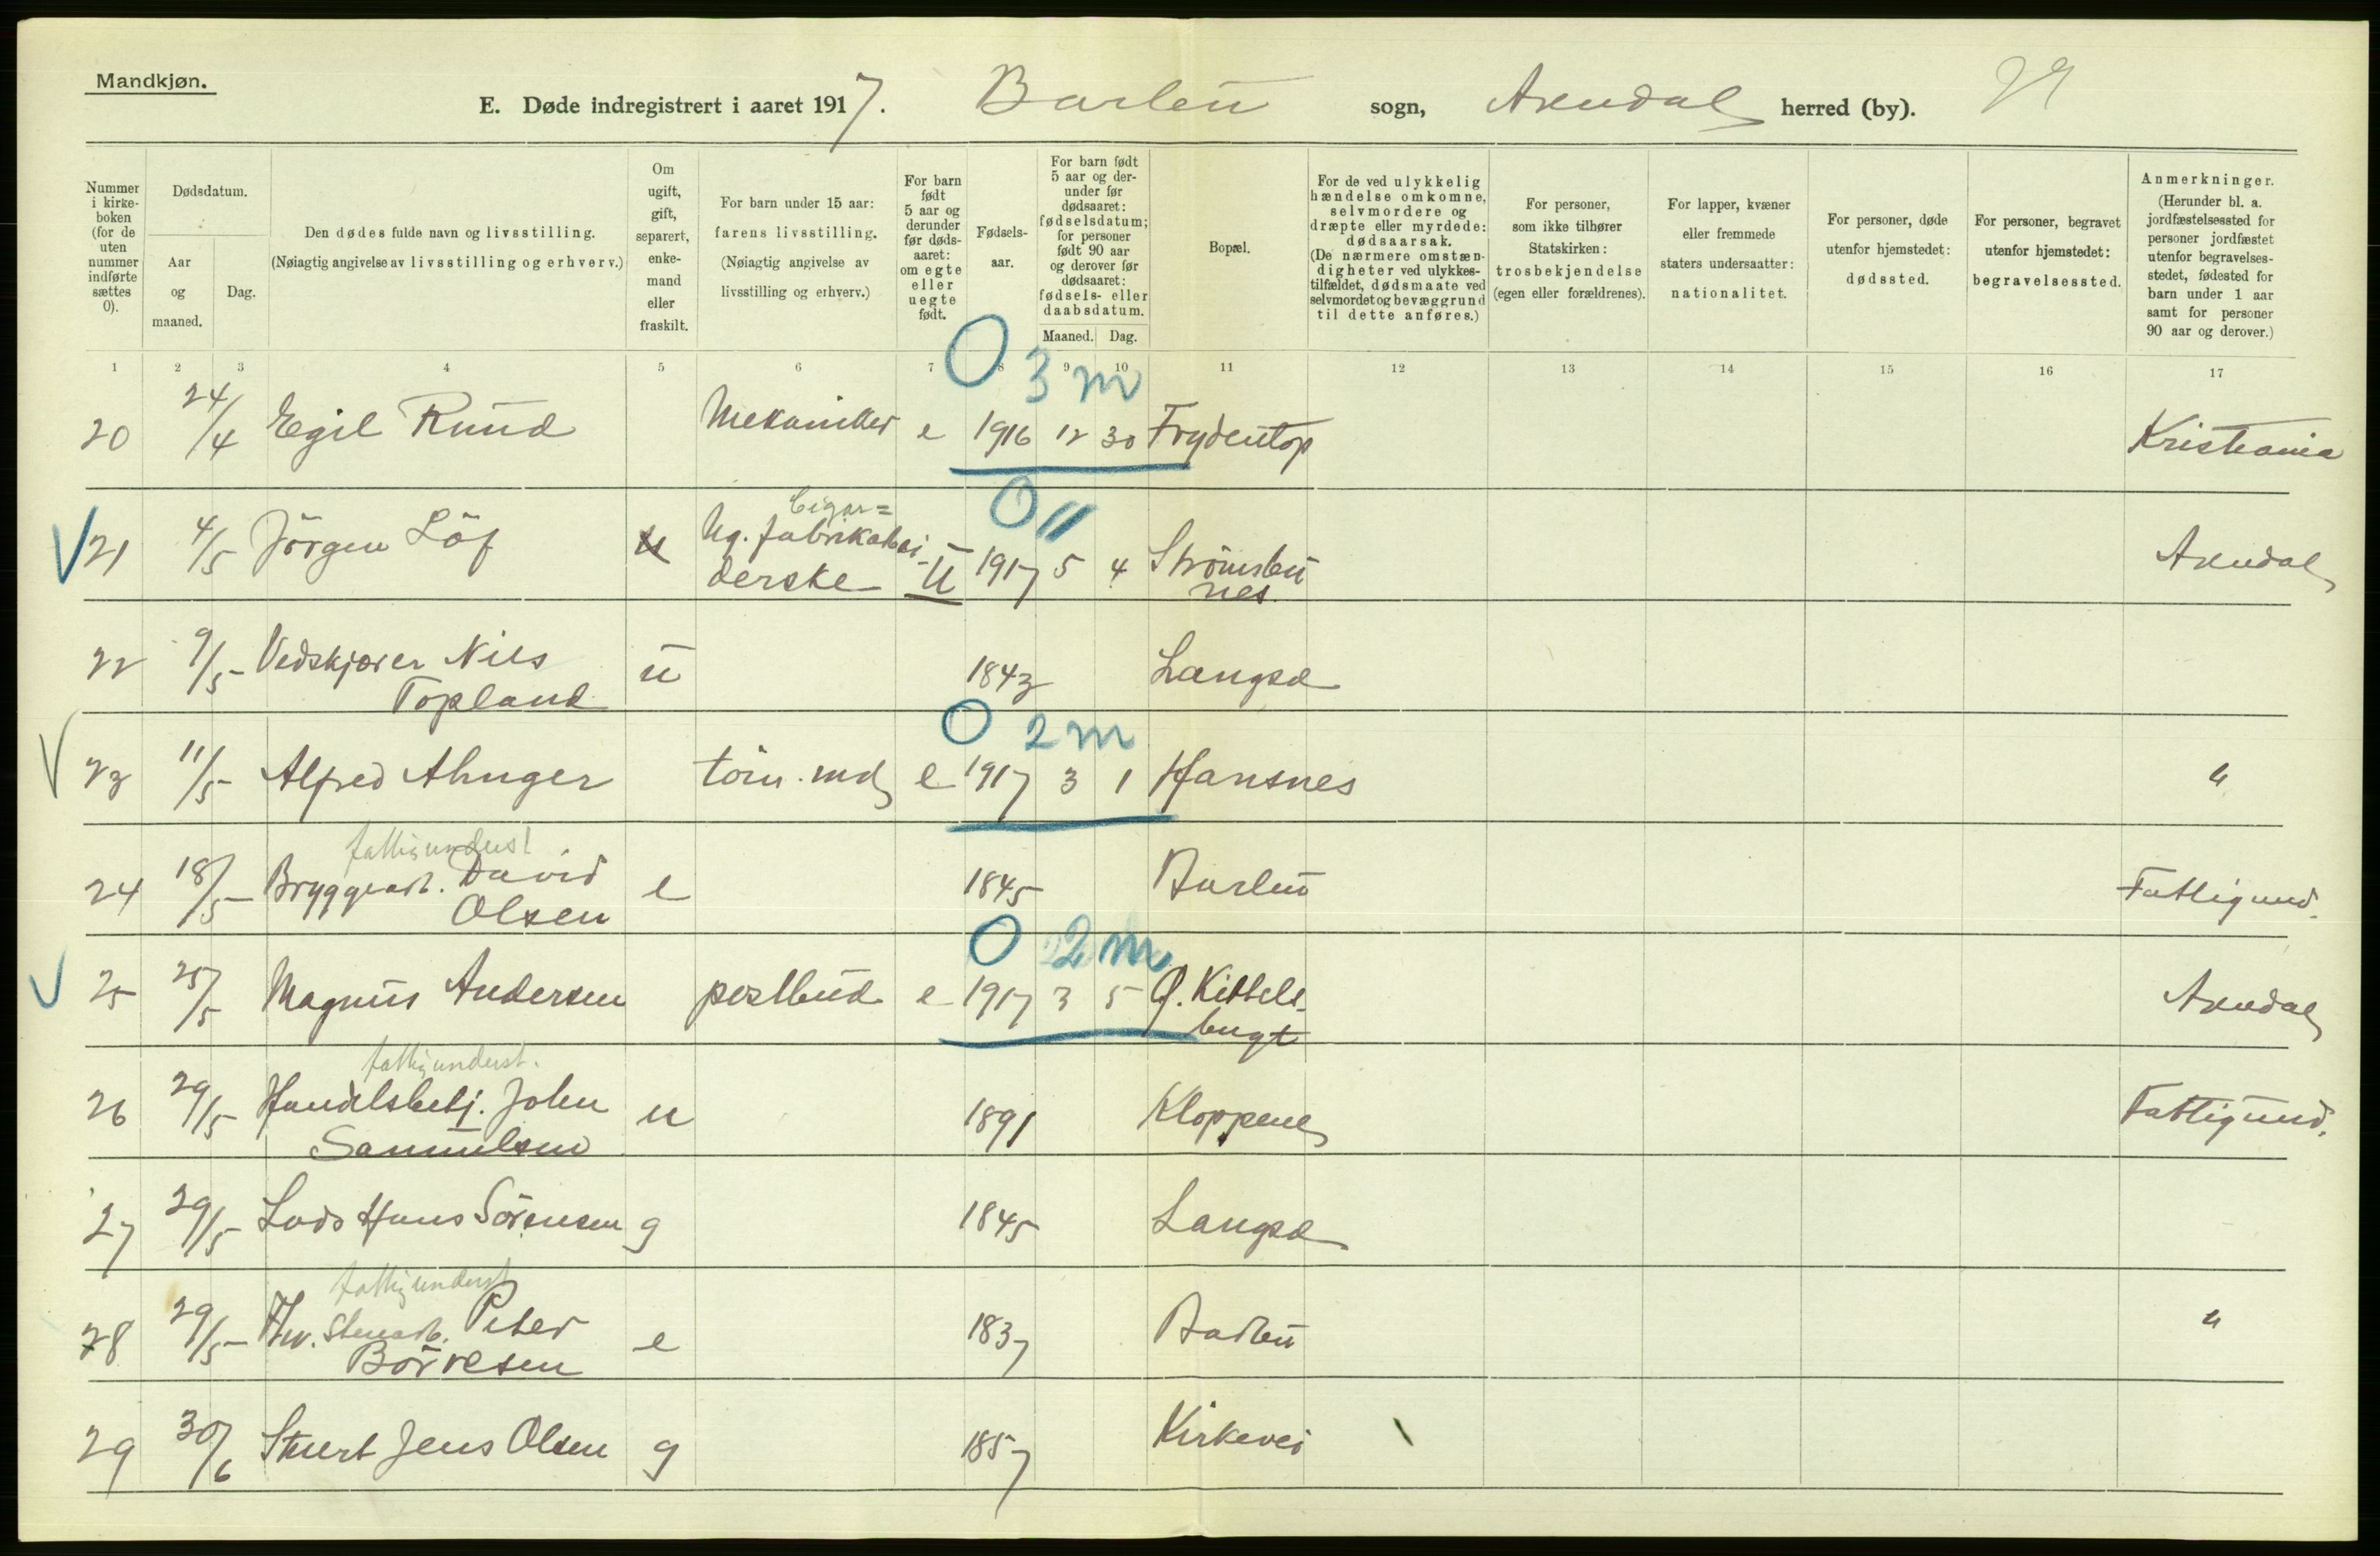 Mandkjøn.
E. Døde indregistrert i aaret 1917. Barbu sogn, Arendal herred (by).
Nummer i kirke-boken (for de uten nummer indførte sættes 0).
Dødsdatum.
Aar og maaned.
Dag.
Den dødes fulde navn og livsstilling.
(Nøiagtig angivelse av livsstilling og erhverv.)
Om ugift, gift, separert, enke-mand eller fraskilt.
For barn under 15 aar: farens livsstilling. (Nøiagtig angivelse av livsstilling og erhverv.)
For barn født 5 aar og derunder før døds-aaret: om egte eller uegte født.
Fødsels-aar.
For barn født 5 aar og der-under før dødsaaret: fødselsdatum; for personer født 90 aar og derover før dødsaaret: fødsels- eller daabsdatum.
Maaned. Dag.
Bopæl.
For de ved ulykkelig hændelse omkomne, selvmordere og dræpte eller myrdede: dødsaarsak. (De nærmere omstæn-digheter ved ulykkes-tilfældet, dødsmaate ved selvmordet og bevæggrund til dette anføres.)
For personer, som ikke tilhører Statskirken: trosbekjendelse (egen eller forældrenes).
For lapper, kvæner eller fremmede staters undersaatter: nationalitet.
For personer, døde utenfor hjemstedet: dødssted.
For personer, begravet utenfor hjemstedet: begravelsessted.
Anmerkninger. (Herunder bl. a. jordfæstelsessted for personer jordfæstet utenfor begravelses-stedet, fødested for barn under 1 aar samt for personer 90 aar og derover.)
1 2 3 4 5 6 7 8 9 10 11 12 13 14 15 16 17
0 3 m
20 24/4 Egil Ruud Mekaniker e 1916 12 30 Frydentop Kristiania
0 11
Cigar=
21 4/5 Jörgen Löf u Ug. fabrikabei- U 1917 5 4 Strömsbu Arendal
derske nes
22 9/5 Vedskjærer Nils u 1843 Langsæ
Topland
0 2 m
23 11/5 Alfred Ahnger töm.md e 1917 3 1 Hansnes "
fattigunderst
24 18/5 Bryggearb. David e 1845 Barbu Fattigund.
Olsen
0 2 m
25 25/5 Magnus Andersen postbud e 1917 3 5 Ø. Kittels-
bugt Arendal
fattigunderst.
26 29/5 Handelsbetj. John u 1891 Kloppene Fattigund.
Samuelsen
27 29/5 Lods Hans Sörensen g 1845 Langsæ
fattigunderst
28 29/5 Fhv. Stenarb. Peter e 1837 Barbu "
Börresen
29 30/6 Stuert Jens Olsen g 1857 Kirkevei